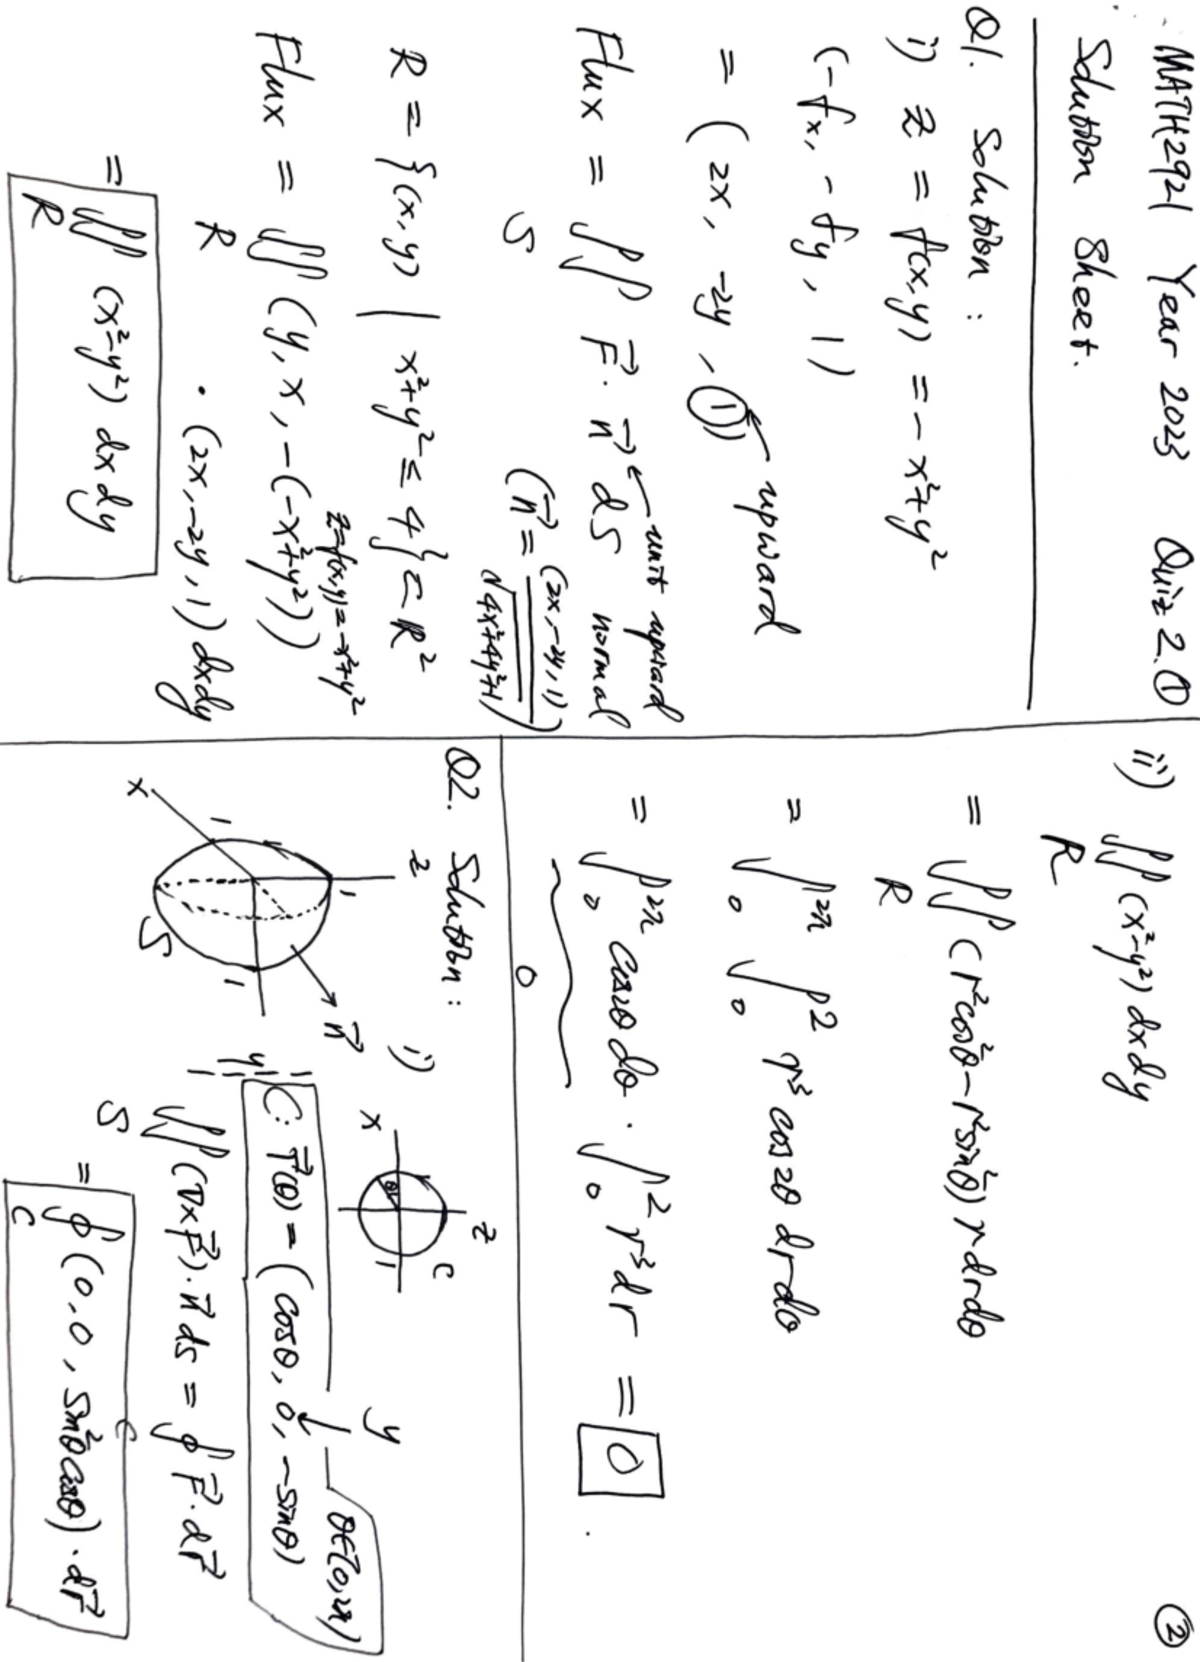 MATH2921 Year 2023 Quiz 2. ①
Solution Sheet.
Q1. Solution :
i) z = f(x,y) = -x²+y²
(-fx, -fy, 1)
= (2x, -2y, 1) ← upward
Flux = ∬_S F⃗ · n⃗ ds ← unit upward normal
(n⃗ = (2x,-2y,1)/√(4x²+4y²+1))
R = {(x,y) | x²+y² ≤ 4} ⊂ R²
z=f(x,y)=-x²+y²
Flux = ∬_R (y, x, -(-x²+y²))
· (2x,-2y,1) dxdy
= ∬_R (x²-y²) dxdy
②
ii) ∬_R (x²-y²) dxdy
= ∬_R (r²cos²θ - r²sin²θ) r drdθ
= ∫₀^2π ∫₀^2 r³ cos2θ drdθ
= ∫₀^2π cos2θ dθ · ∫₀^2 r³ dr = 0 .
0
Q2. Solution :
z
1
1
1
x
y
S
n⃗
i)
z
x
θ
1
C
y
C: r⃗(θ) = (cosθ, 0, -sinθ)
θ∈[0,2π)
∬_S (∇×F⃗)·n⃗ ds = ∮_C F⃗·dr⃗
= ∮_C (0, 0, sin²θcosθ) · dr⃗